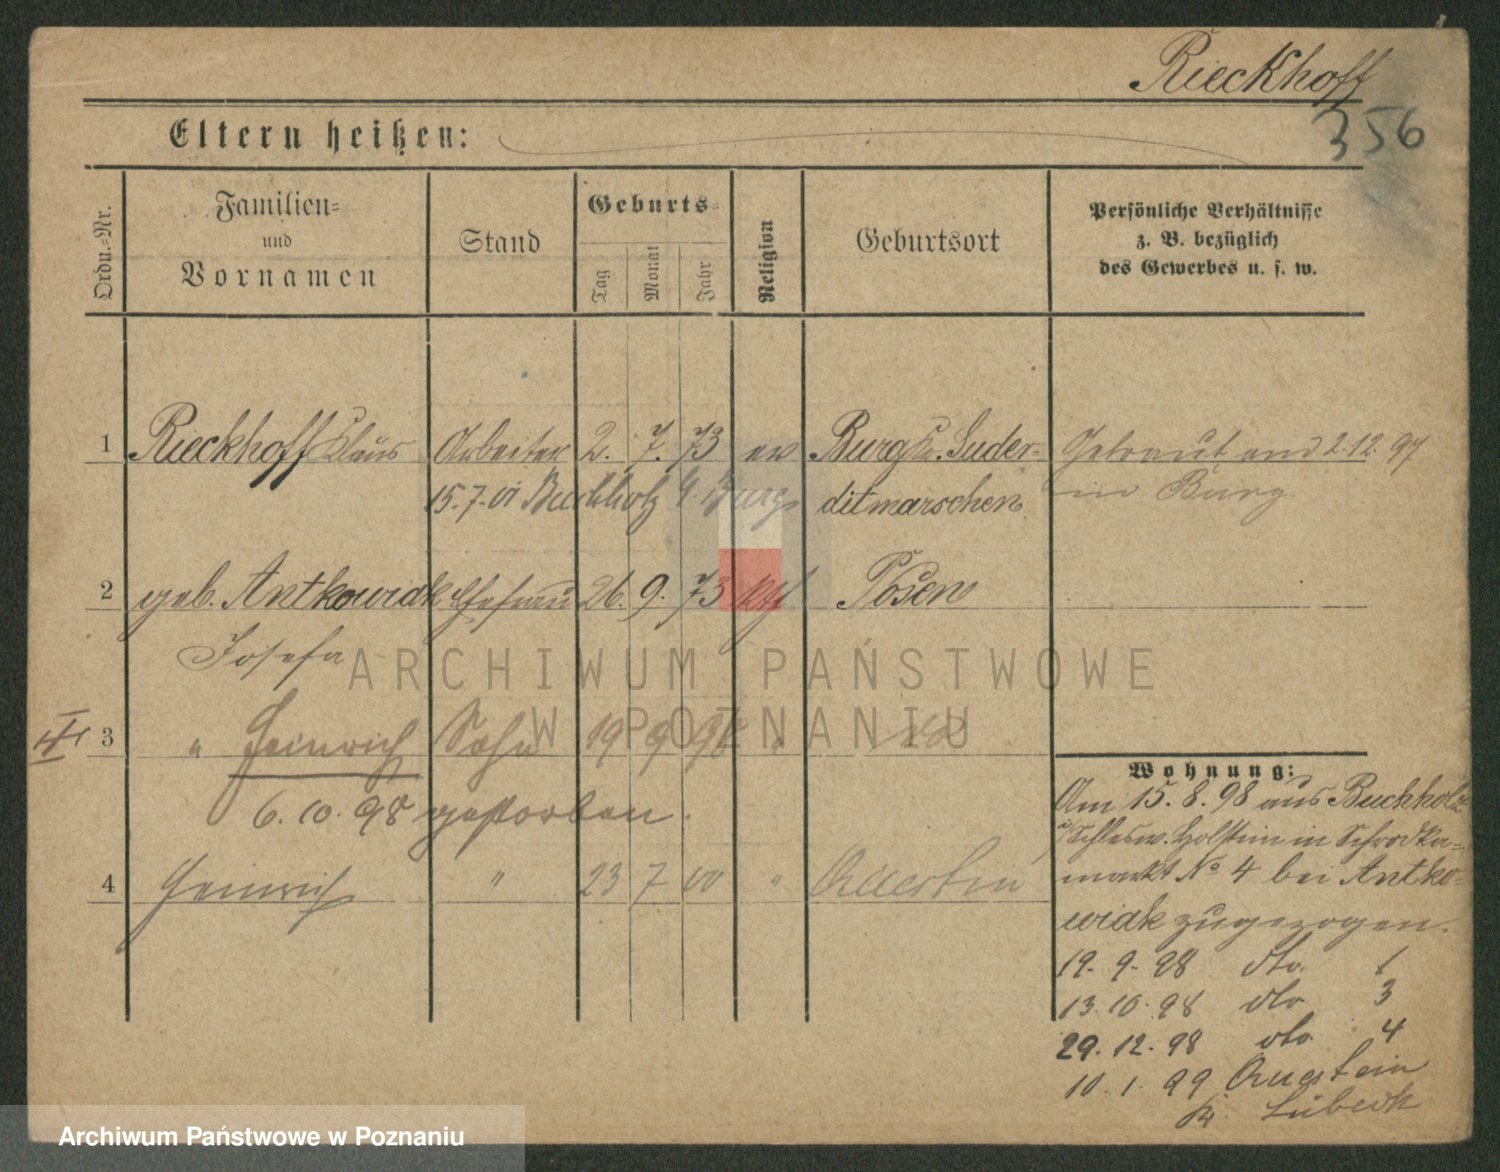 Rieckhoff
356
Eltern heißen:
Ordn.-Nr.
Familien-
und
Vornamen
Stand
Geburts-
Tag
Monat
Jahr
Religion
Geburtsort
Persönliche Verhältnisse
z. B. bezüglich
des Gewerbes u. s. w.
1 Rieckhoff Klaus Arbeiter 2. 7. 73 ev Burg Kr. Suder- Getraut am 2.12.97
15.7.01 Buchholz b. Burg ditmarschen in Burg
2 geb. Antkowiak Ehefrau 26. 9. 73 kth Posen
Josefa
3 " Heinrich Sohn 19 9 98 "
6. 10. 98 gestorben.
4 Heinrich " 23 7 00 "
Wohnung:
Am 15. 8. 98 aus Buchholz
i/Schlesw. Holstein in Schrodka-
markt No 4 bei Antko-
wiak zugezogen.
19. 9. 98 dto. 1
13. 10. 98 dto 3
29. 12. 98 dto. 4
10. 1. 99
Kr. Lübeck
ARCHIWUM PAŃSTWOWE
W POZNANIU
Archiwum Państwowe w Poznaniu